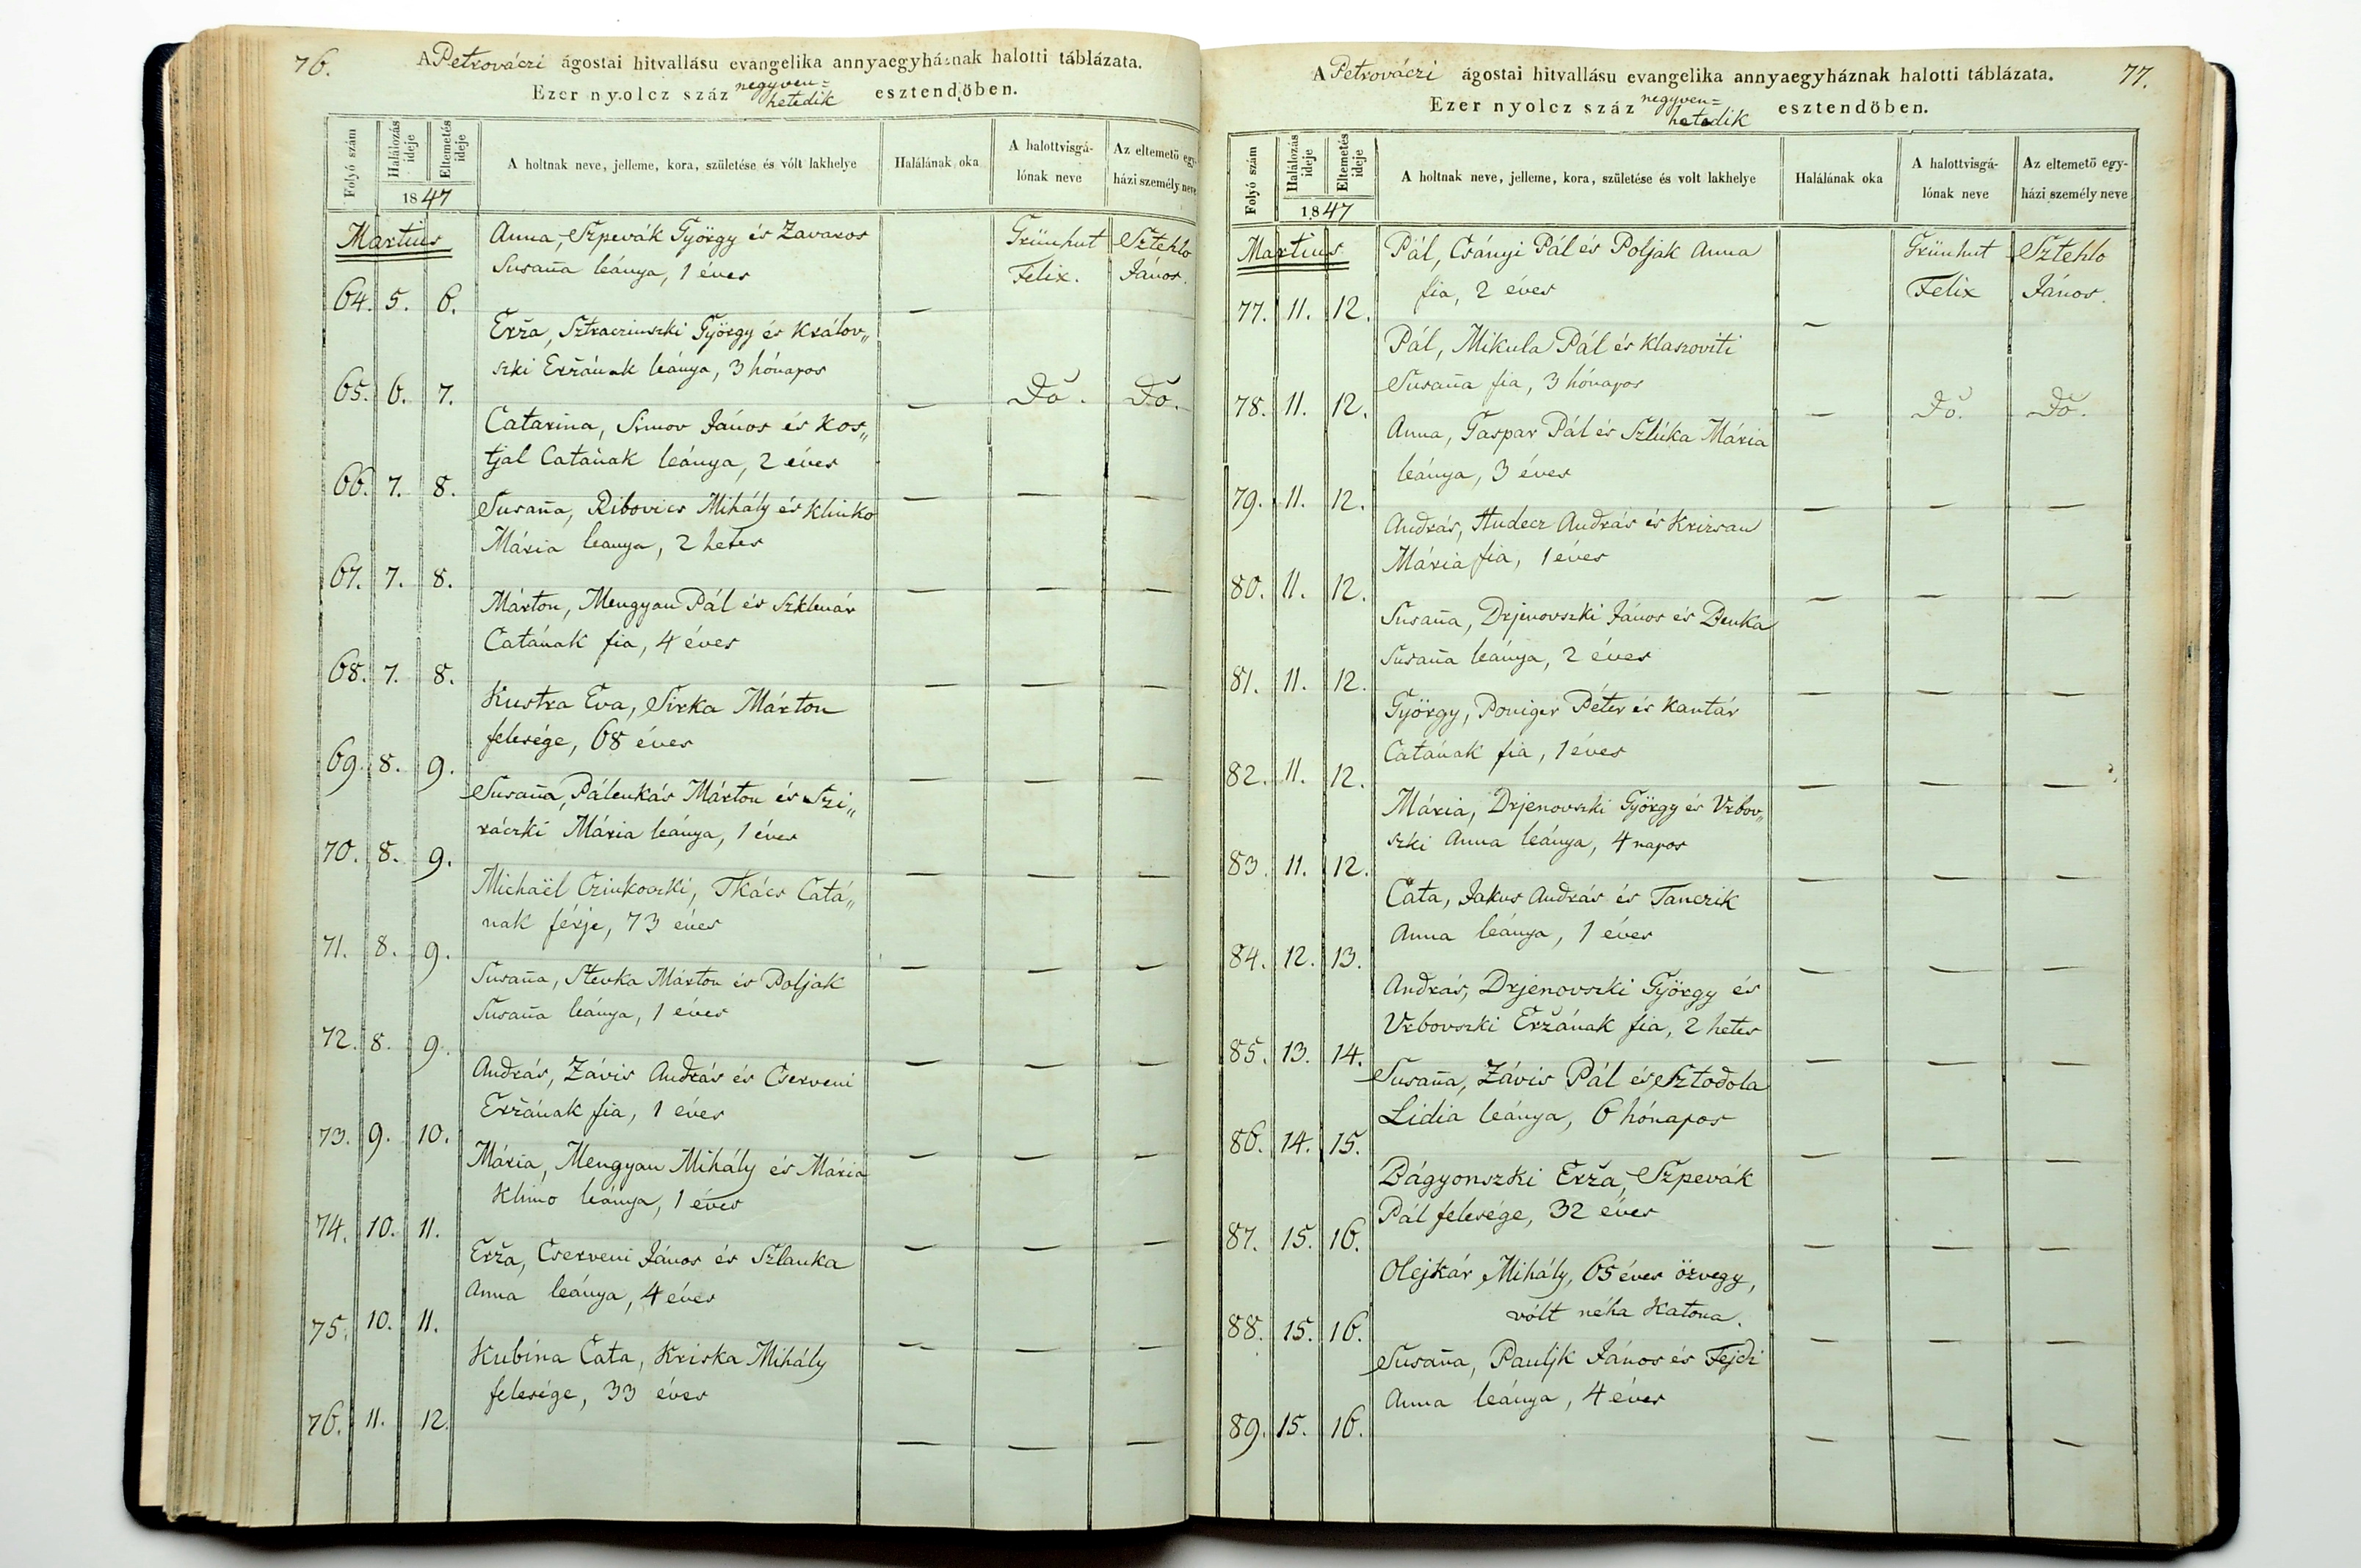 76.
A Petrováczi ágostai hitvallásu evangelika annyaegyháznak halotti táblázata.
Ezer nyolcz száz negyven=
hetedik esztendöben.
Folyó szám
Halálozás ideje
Eltemetés ideje
1847
A holtnak neve, jelleme, kora, születése és vólt lakhelye
Halálának oka
A halottvisgá-
lónak neve
Az eltemető egy-
házi személy neve
Martius
Anna, Szpevák György és Zavaros
Susaña leánya, 1 éves
Grünhut
Felix.
Sztehlo
János.
64. 5. 6. —
Erža, Sztracziuszki György és Králov„
szki Eržának leánya, 3 hónapos
65. 6. 7. — Do. Do.
Catarina, Simov János és Kos„
tjal Catának leánya, 2 éves
66. 7. 8. — — —
Susaña, Ribovics Mihály és Klinko
Mária leanya, 2 hetes
67. 7. 8. — — —
Márton, Mengyan Pál és Szklenár
Catának fia, 4 éves
68. 7. 8. — — —
Kustra Eva, Sirka Márton
felesége, 68 éves
69. 8. 9. — — —
Susaña, Pálenkás Márton és Szi„
ráczki Mária leánya, 1 éves
70. 8. 9. — — —
Michaël Czinkovszki, Tkács Catá„
nak férje, 73 éves
71. 8. 9. — — —
Susaña, Stevka Márton és Poljak
Susaña leánya, 1 éves
72. 8. 9. — — —
András, Závis András és Cserveni
Eržának fia, 1 éves
73. 9. 10. — — —
Mária, Mengyan Mihály és Mária
Klimo leánya, 1 éves
74. 10. 11. — — —
Erža, Cserveni János és Szlanka
Anna leánya, 4 éves
75. 10. 11. — — —
Kubina Cata, Kriska Mihály
felesége, 33 éves
76. 11. 12. — — —
77.
A Petrováczi ágostai hitvallásu evangelika annyaegyháznak halotti táblázata.
Ezer nyolcz száz negyven=
hetedik esztendöben.
Folyó szám
Halálozás ideje
Eltemetés ideje
1847
A holtnak neve, jelleme, kora, születése és volt lakhelye
Halálának oka
A halottvisgá-
lónak neve
Az eltemető egy-
házi személy neve
Martius
Pál, Csányi Pál és Poljak Anna
fia, 2 éves
Grünhut
Felix
Sztehlo
János.
77. 11. 12. —
Pál, Mikula Pál és Klaszoviti
Susaña fia, 3 hónapos
78. 11. 12. — Do. Do.
Anna, Gaspar Pál és Szlúka Mária
leánya, 3 éves
79. 11. 12. — — —
András, Hudecz András és Krizsan
Mária fia, 1 éves
80. 11. 12. — — —
Susaña, Drjenovszki János és Benka
Susaña leánya, 2 éves
81. 11. 12. — — —
György, Poniger Péter és Kantár
Catának fia, 1 éves
82. 11. 12. — — —
Mária, Drjenovszki György és Vrbov„
szki Anna leánya, 4 napos
83. 11. 12. — — —
Cata, Jakus András és Tanczik
Anna leánya, 1 éves
84. 12. 13. — — —
András, Drjenovszki György és
Vrbovszki Eržának fia, 2 hetes
85. 13. 14. — — —
Susaña, Závis Pál és Sztodola
Lidia leánya, 6 hónapos
86. 14. 15. — — —
Bágyonszki Erža, Szpevák
Pál felesége, 32 éves
87. 15. 16. — — —
Olejkár Mihály, 65 éves özvegy,
vólt néha Katona.
88. 15. 16. — — —
Susaña, Pauljk János és Fejdi
Anna leánya, 4 éves
89. 15. 16. — — —